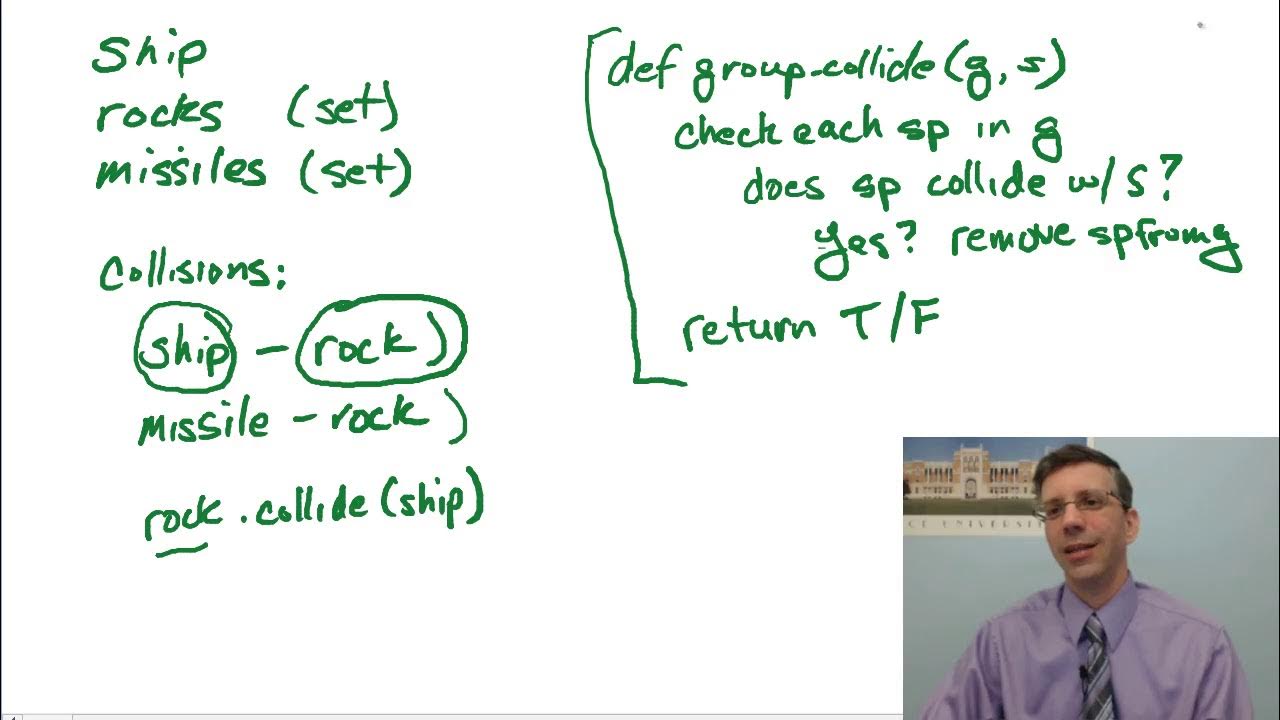 Ship
rocks (set)
missiles (set)
Collisions:
ship - rock )
missile - rock )
rock.collide(ship)
def group-collide(g,s)
check each sp in g
does sp collide w/ s?
yes? remove sp from g
return T/F
CE UNIVERSIT